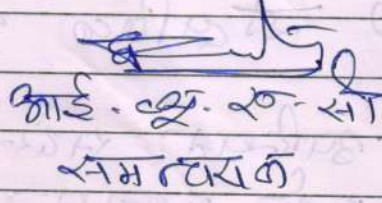 आई. क्यू. ए. सी
समन्वयक